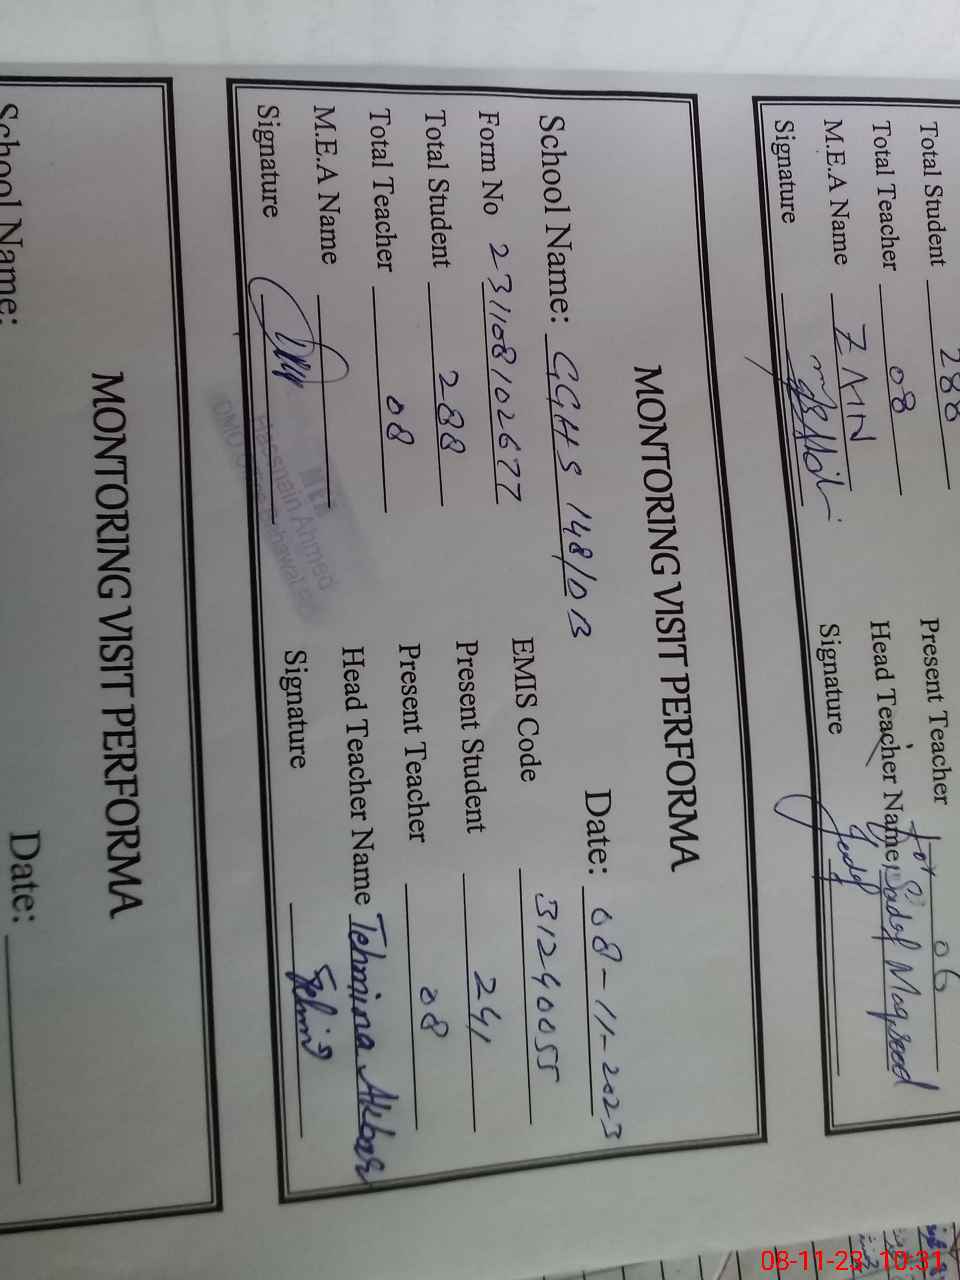 Total Student 288
Total Teacher 08 Present Teacher 06
M.E.A Name ZMN Head Teacher Name for Sadaf Maqsood
Signature Signature
MONTORING VISIT PERFORMA
School Name: GGHS 148/DB Date: 08-11-2023
Form No 231108102677 EMIS Code 31240055
Total Student 288 Present Student 241
Total Teacher 08 Present Teacher 08
M.E.A Name Head Teacher Name Tehmina Akbar
Signature Signature
Hasnain Ahmed
MONTORING VISIT PERFORMA
School Name: Date:
08-11-23 10:31